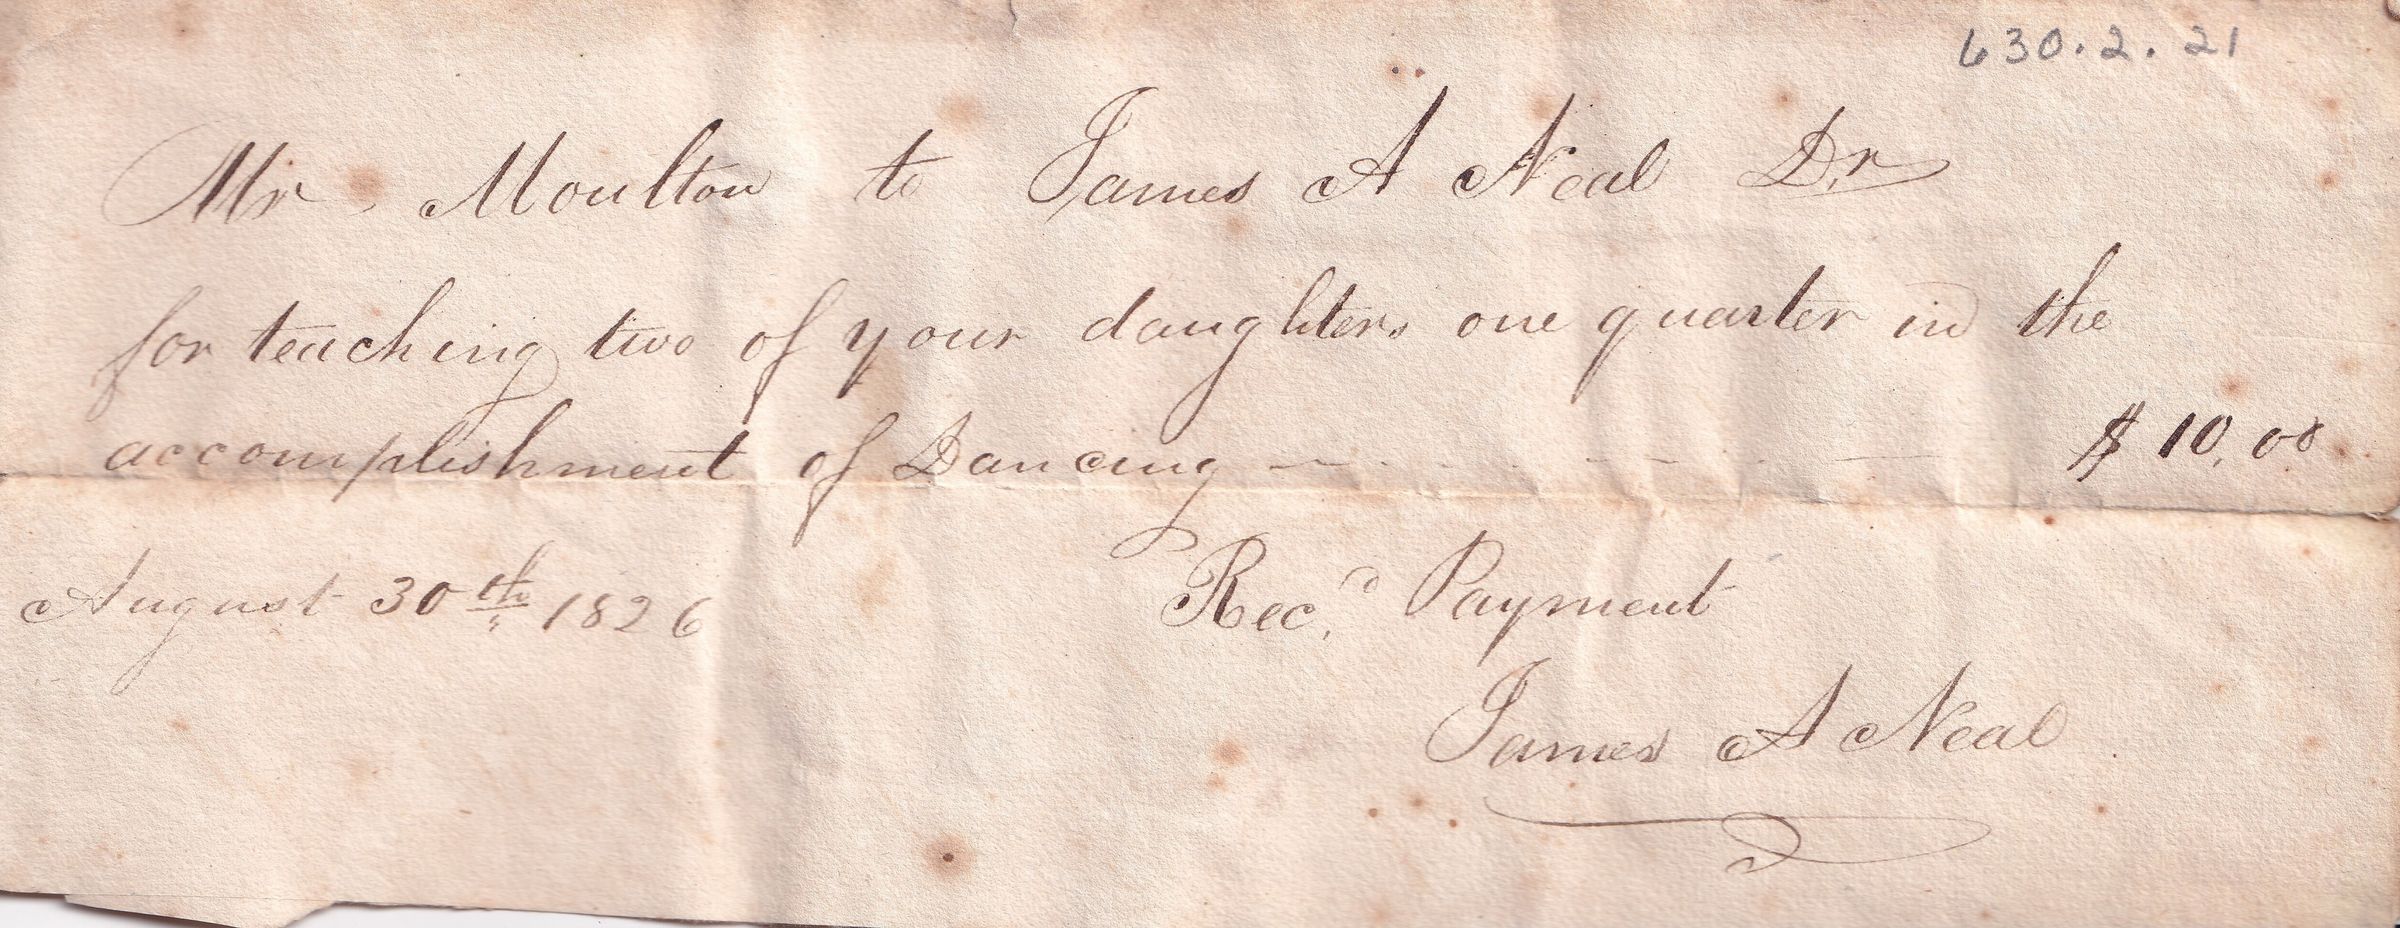 630.2.21
Mr Moulton to James A Neal Dr
for teaching two of your daughters one quarter in the
accomplishment of Dancing — $10.00
August 30th 1826 Recd Payment
James A Neal